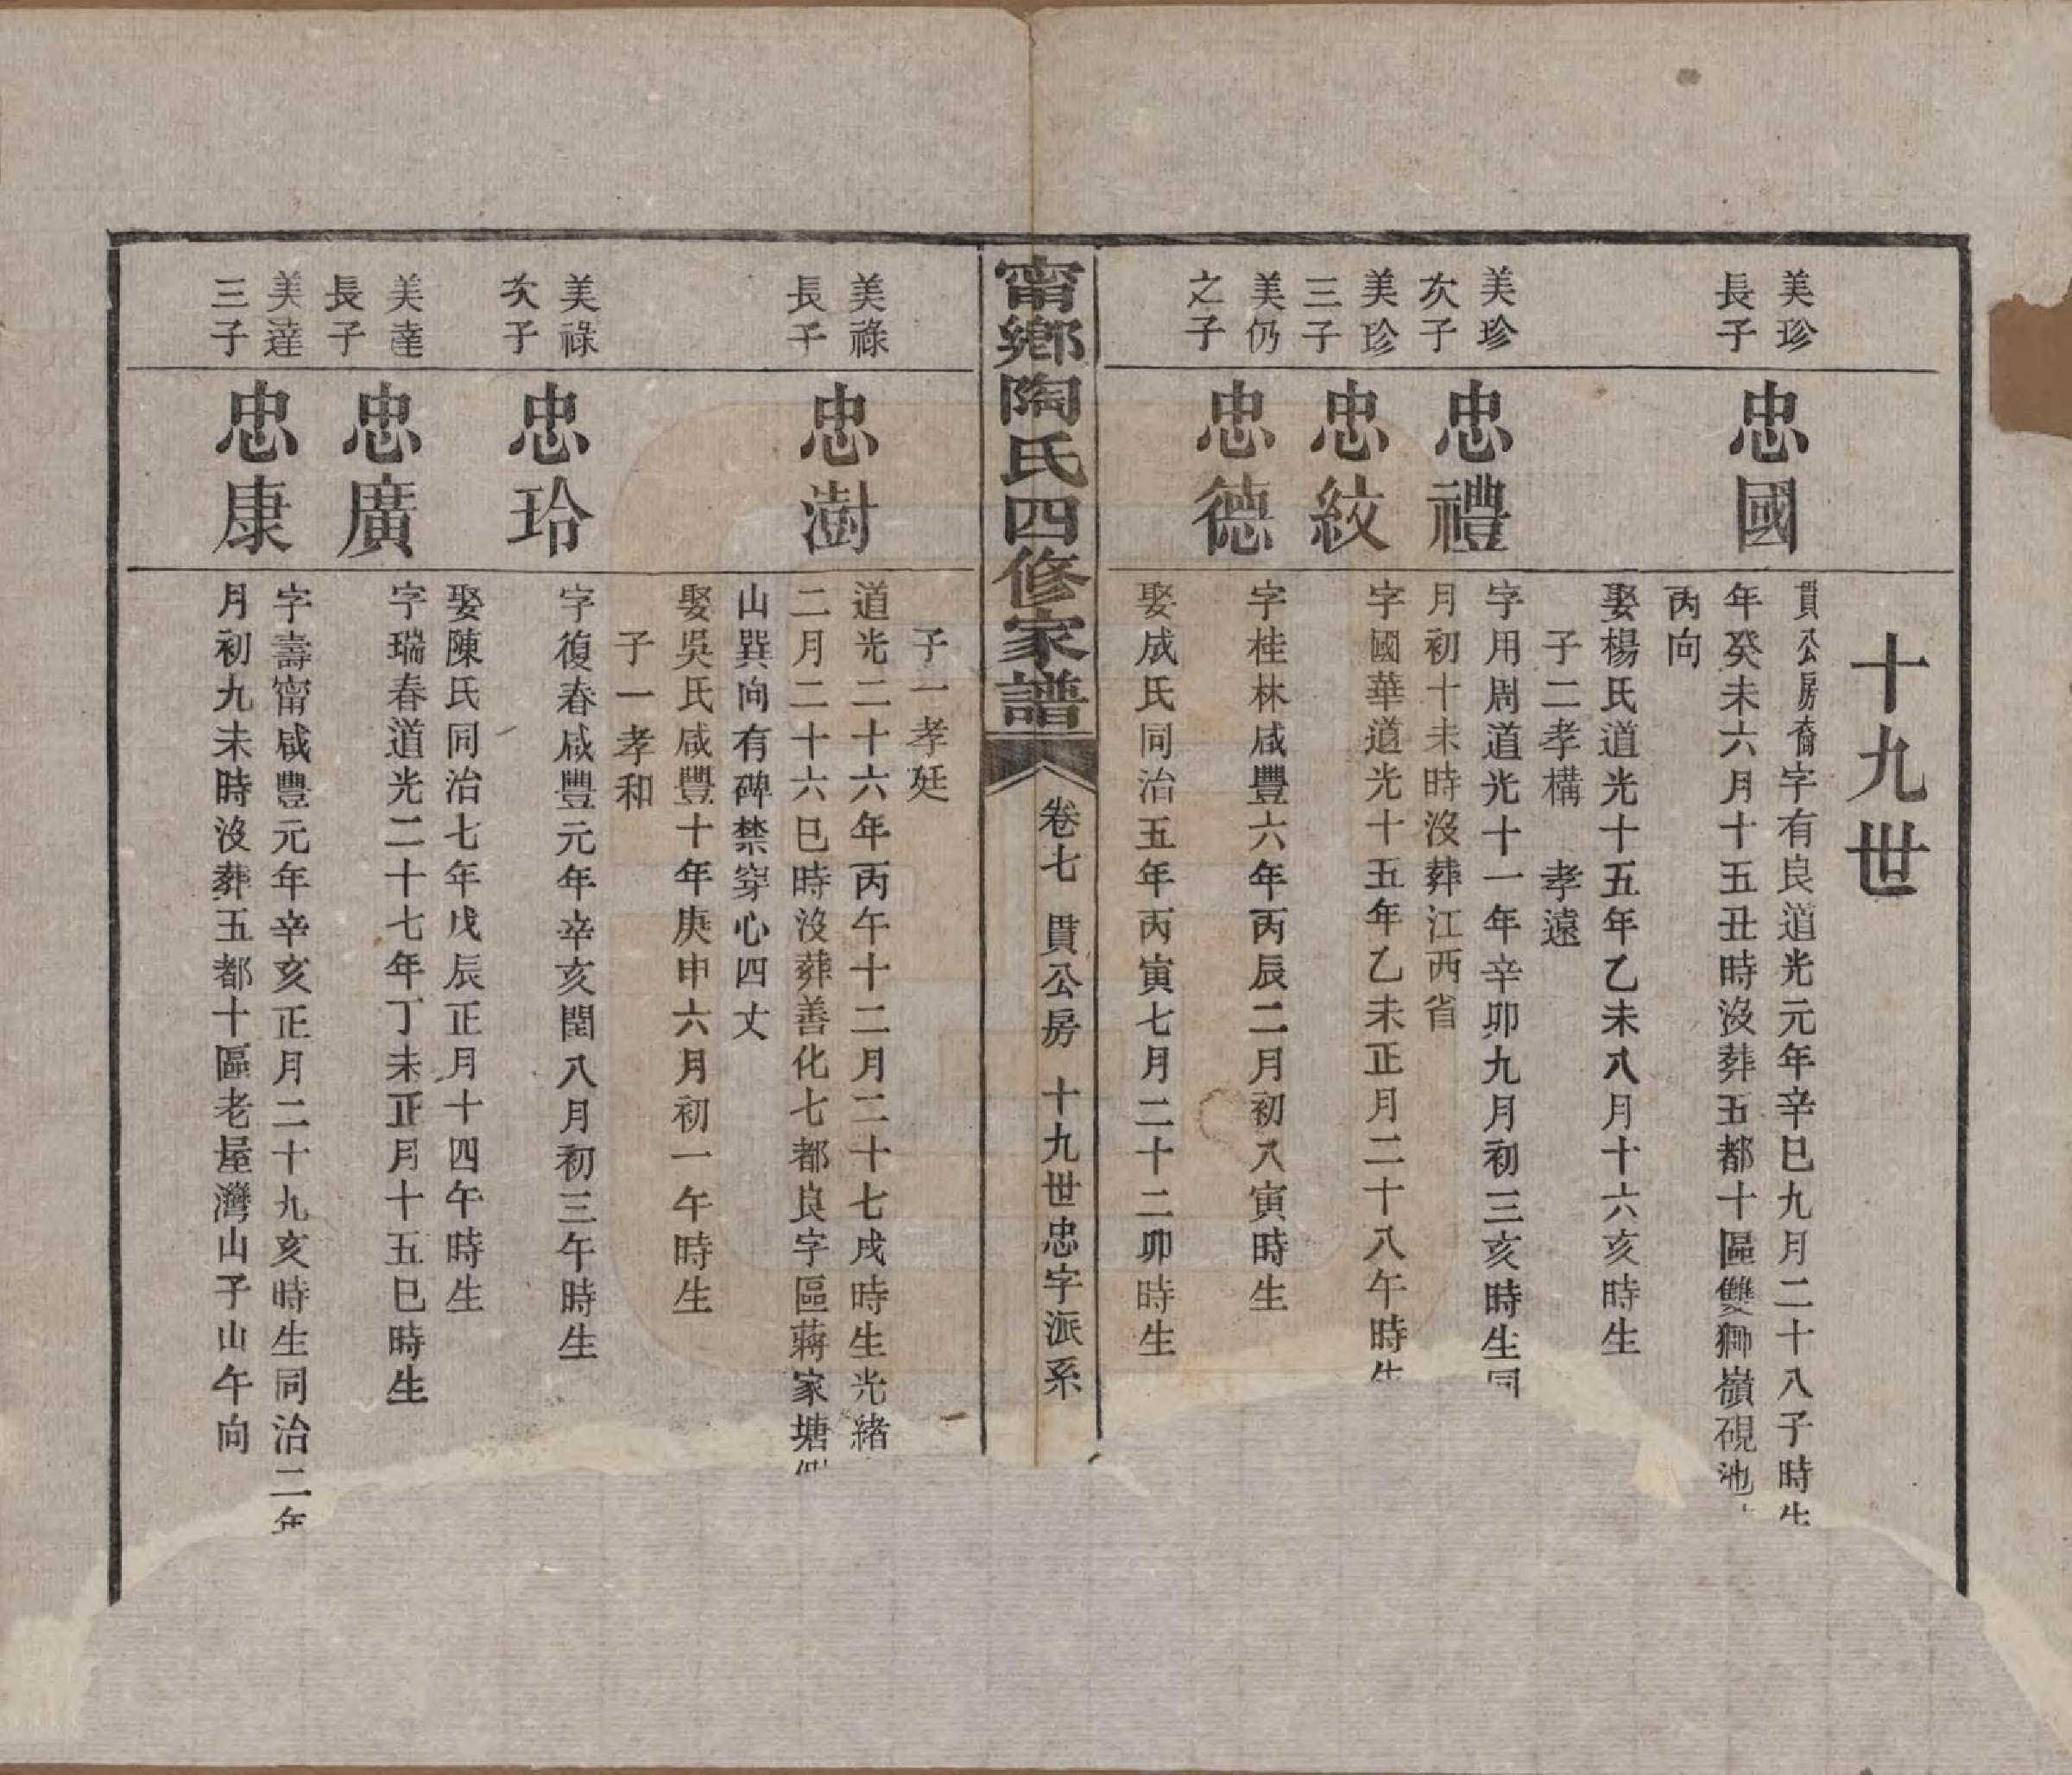 十九世
美珍
長子
忠國
貫公房裔字有良道光元年辛巳九月二十八子時生
年癸未六月十五丑時沒葬五都十區雙獅嶺硯池
丙向
娶楊氏道光十五年乙未八月十六亥時生
子二孝構　孝遠
美珍
次子
忠禮
字用周道光十一年辛卯九月初三亥時生同
月初十未時沒葬江西省
美珍
三子
忠紋
字國華道光十五年乙未正月二十八午時生
美仍
之子
忠德
字桂林咸豐六年丙辰二月初八寅時生
娶成氏同治五年丙寅七月二十二卯時生
甯鄉陶氏四修家譜
卷七　貫公房　十九世忠字派系
子一孝廷
美祿
長子
忠澍
道光二十六年丙午十二月二十七戌時生光緒
二月二十六巳時沒葬善化七都良字區蔣家塘
山巽向有碑禁穿心四丈
娶吳氏咸豐十年庚申六月初一午時生
子一孝和
美祿
次子
忠玲
字復春咸豐元年辛亥閏八月初三午時生
娶陳氏同治七年戊辰正月十四午時生
美達
長子
忠廣
字瑞春道光二十七年丁未正月十五巳時生
美達
三子
忠康
字壽甯咸豐元年辛亥正月二十九亥時生同治二年
月初九未時沒葬五都十區老屋灣山子山午向